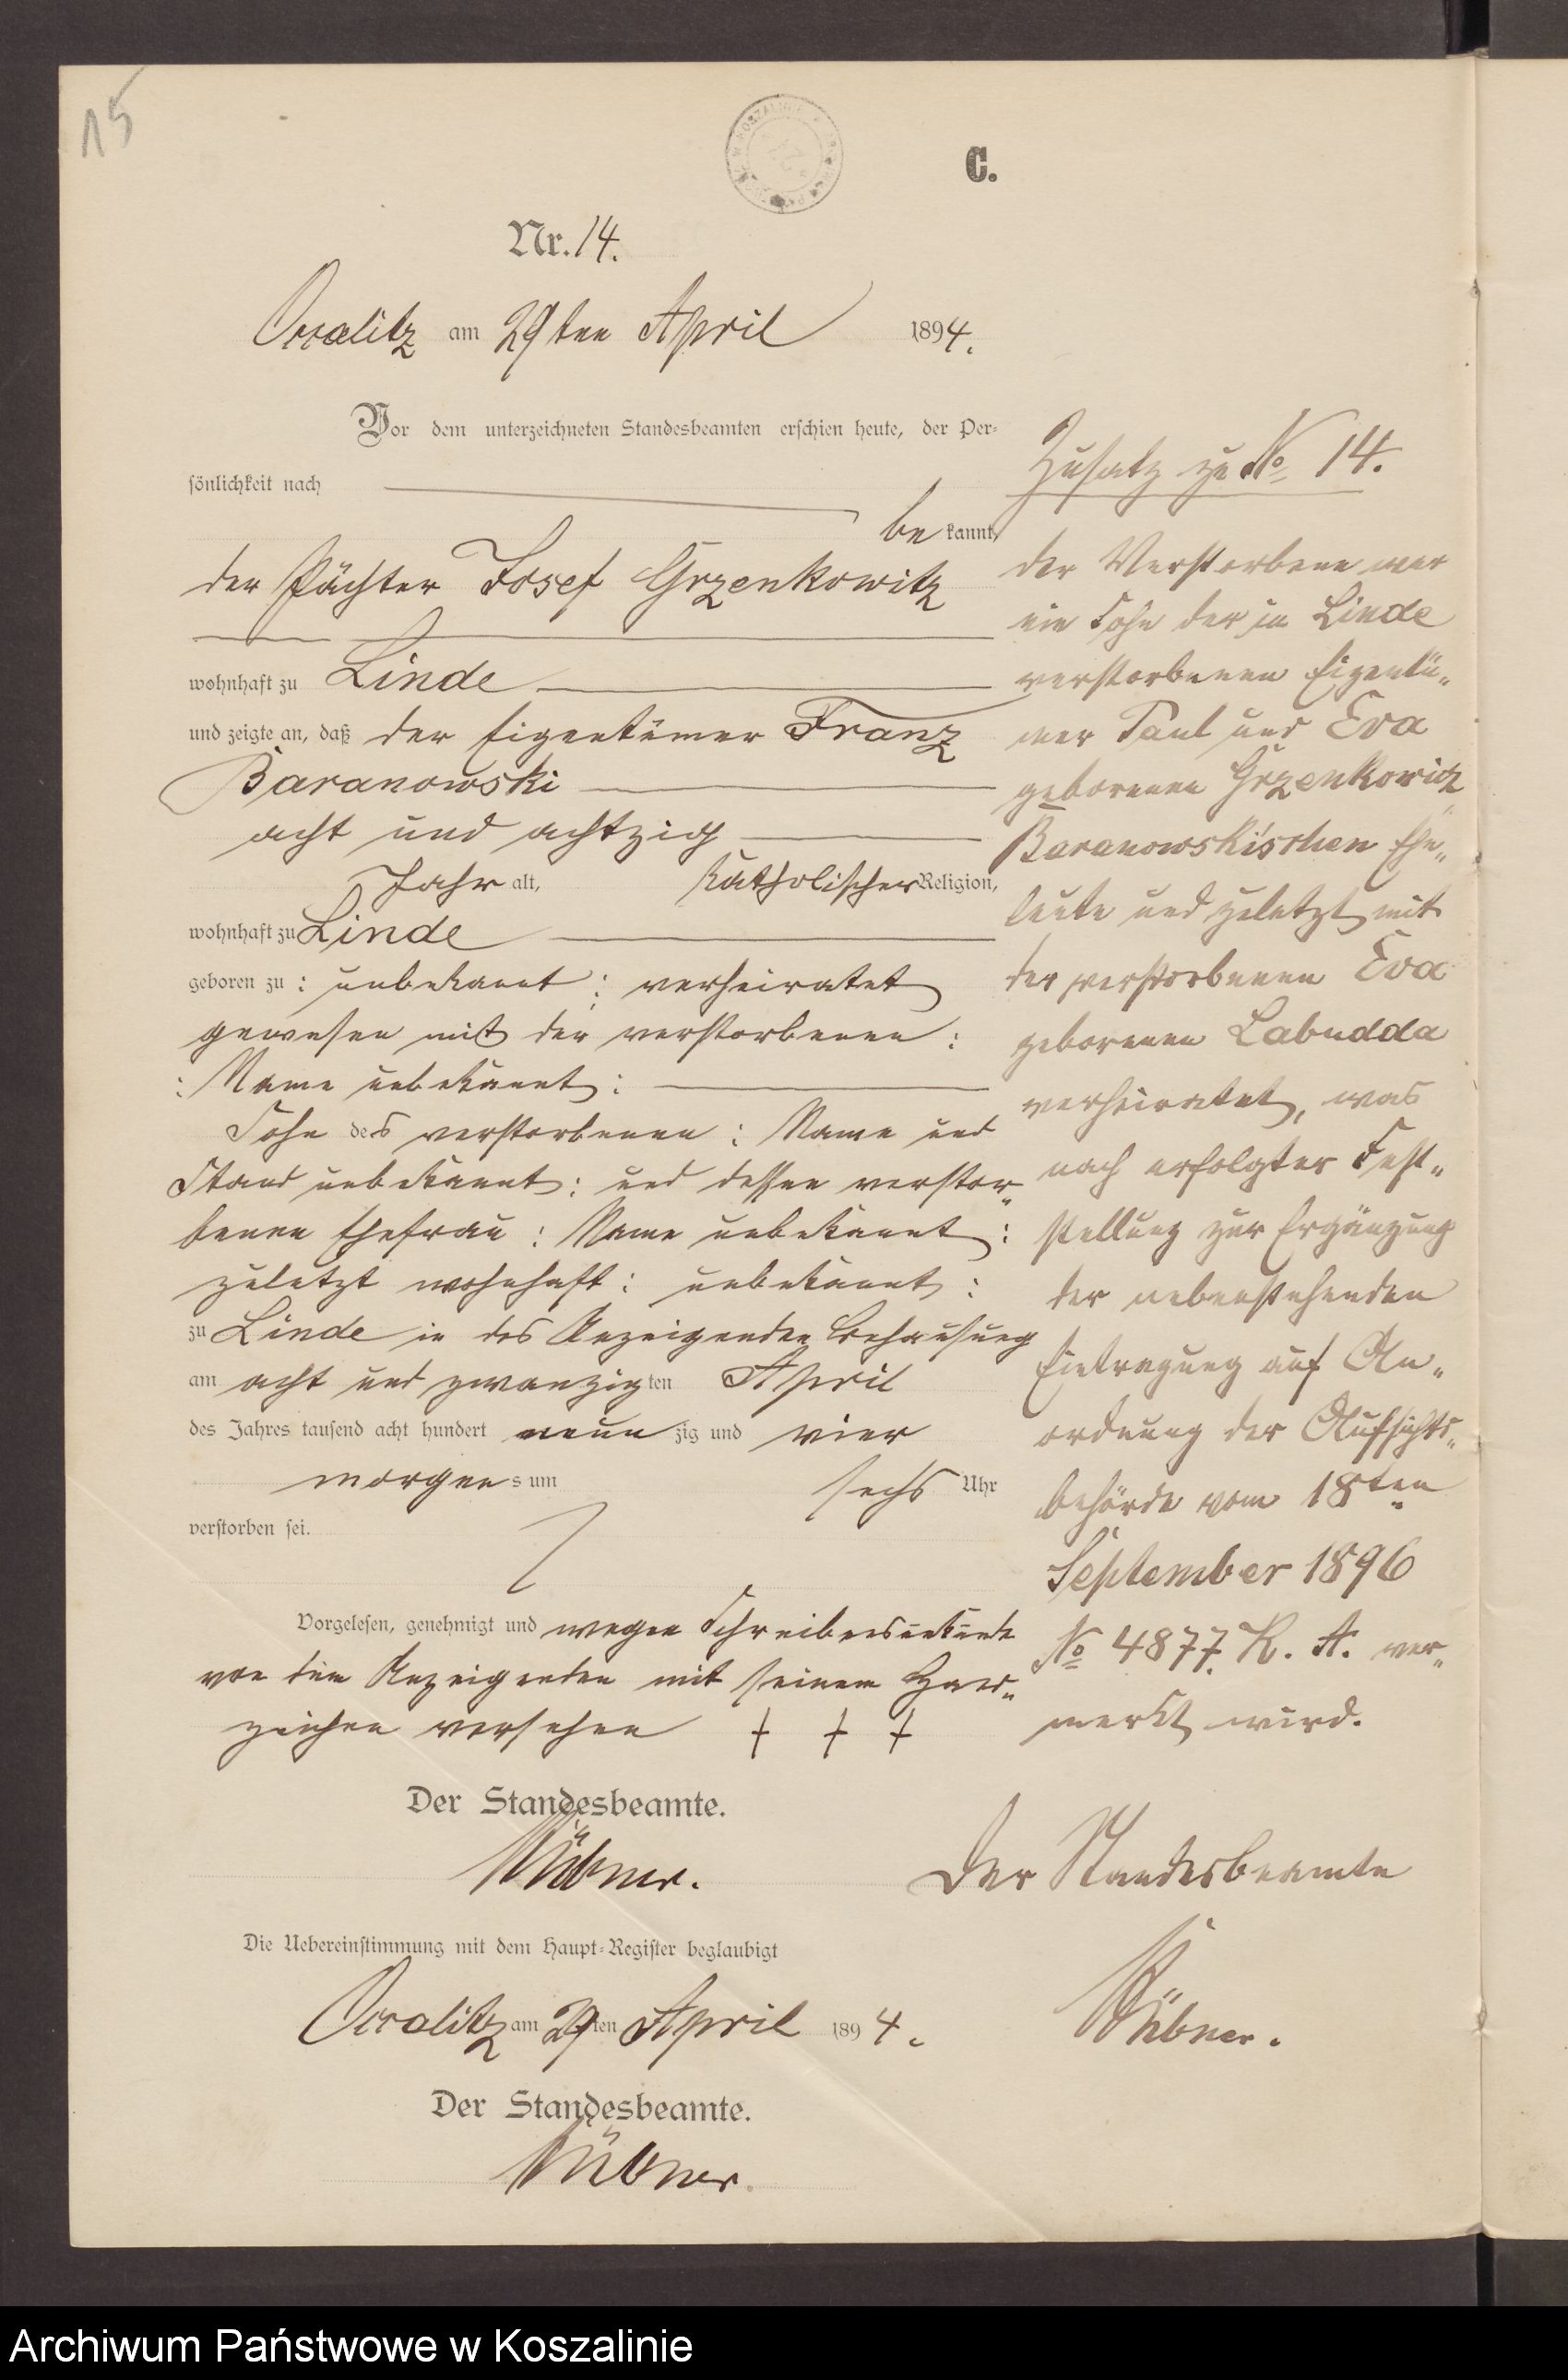 15
C.
Nr. 14.
Ossalitz am 29ten April 1894.
Vor dem unterzeichneten Standesbeamten erschien heute, der Per-
sönlichkeit nach
bekannt,
der Pächter Josef Grzenkowitz
wohnhaft zu Linde
und zeigte an, daß der Eigentümer Franz
Baranowski
acht und achtzig
Jahr alt, katholischer Religion,
wohnhaft zu Linde
geboren zu : unbekannt : verheiratet
gewesen mit der verstorbenen :
: Name unbekannt :
Sohn des verstorbenen : Name und
Stand unbekannt : und dessen verstor„
benen Ehefrau : Name unbekannt :
zuletzt wohnhaft : unbekannt :
zu Linde in des Anzeigenden Behausung
am acht und zwanzigten April
des Jahres tausend acht hundert neunzig und vier
morgens um sechs Uhr
verstorben sei.
Vorgelesen, genehmigt und wegen Schreibensunkunde
von dem Anzeigenden mit seinem Hand„
zeichen versehen † † †
Der Standesbeamte.
Hübner.
Die Uebereinstimmung mit dem Haupt-Register beglaubigt
Ossalitz am 29ten April 1894.
Der Standesbeamte.
Hübner.
Zusatz zu No 14.
der Verstorbene war
ein Sohn der in Linde
verstorbenen Eigentü„
mer Paul und Eva
geborenen Grzenkowitz
Baranowski'schen Ehe„
leute und zuletzt mit
der verstorbenen Eva
geborenen Labudda
verheiratet, was
nach erfolgter Fest„
stellung zur Ergänzung
der nebenstehenden
Eintragung auf An„
ordnung der Aufsichts„
behörde vom 18ten
September 1896
No 4877. K. A. ver„
merkt wird.
Der Standesbeamte
Hübner.
Archiwum Państwowe w Koszalinie